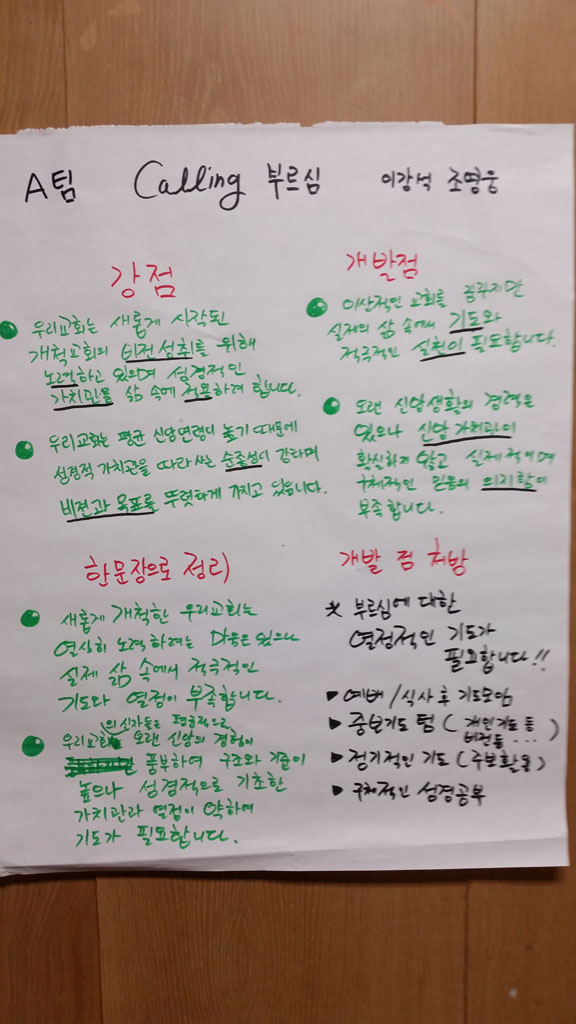 A팀 Calling 부르심 이강석 조영웅
강점
우리교회는 새롭게 시작된
개척교회의 비전성취를 위해
노력하고 있으며 성경적인
가치관을 삶 속에 적용하려 합니다.
우리교회는 평균 신앙연령이 높기 때문에
성경적 가치관을 따라 사는 순종성이 강하며
비전과 목표를 뚜렷하게 가지고 있습니다.
개발점
이상적인 교회를 꿈꾸지만
실제의 삶 속에서 기도와
적극적인 실천이 필요합니다.
오랜 신앙생활의 경력은
있으나 신앙가치관이
확실하지 않고 실제적이며
구체적인 믿음의 의지함이
부족합니다.
한문장으로 정리
새롭게 개척한 우리교회는
열심히 노력하려는 마음은 있으나
실제 삶 속에서 적극적인
기도와 열정이 부족합니다.
의 신자들은 평균적으로
우리교회 오랜 신앙의 경험이
풍부하여 구조와 기준이
높으나 성경적으로 기초한
가치관과 열정이 약하여
기도가 필요합니다.
개발 점 처방
* 부르심에 대한
열정적인 기도가
필요합니다!!
▶ 예배/식사 후 기도모임
▶ 중보기도 팀 (개인기도 등
비전등...)
▶ 정기적인 기도 (주보활용)
▶ 구체적인 성경공부